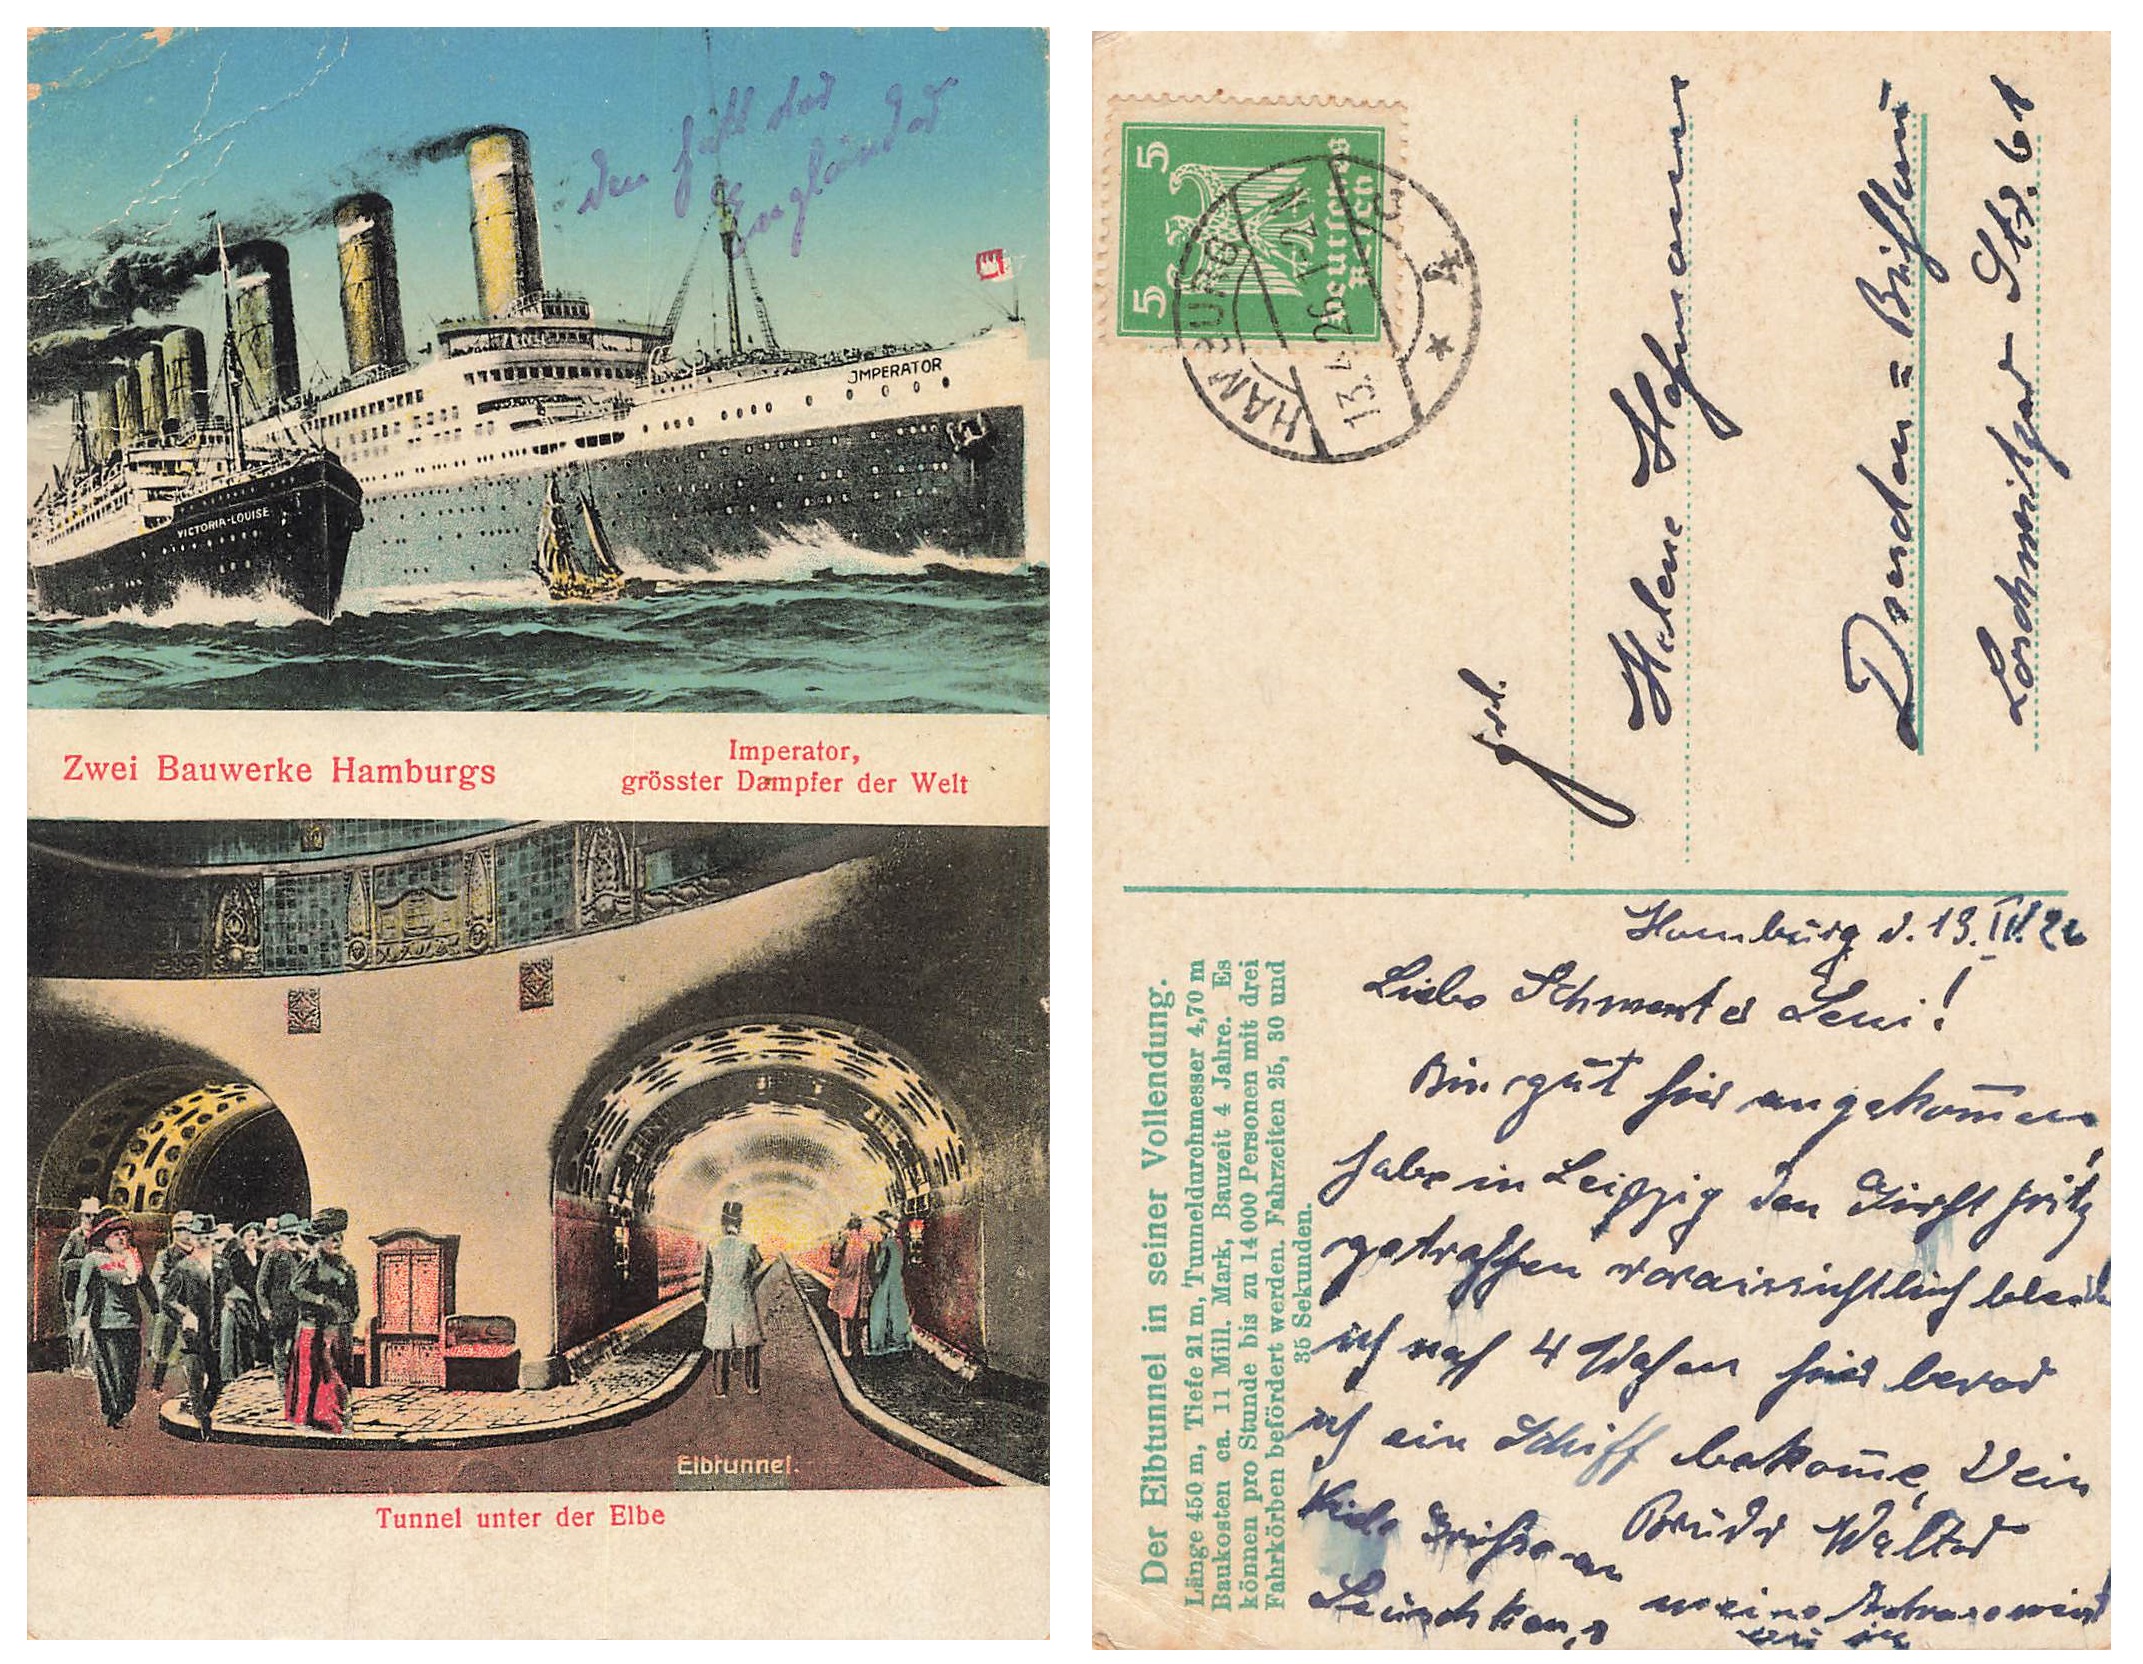 den hatt der
Engländer
JMPERATOR
VICTORIA-LOUISE
Zwei Bauwerke Hamburgs
Imperator,
grösster Dampfer der Welt
Elbtunnel.
Tunnel unter der Elbe
5 5
Deutsches
Reich
HAMBURG
13.4.26. 1-2 N
* 4
Frl.
Helene Hofmann
Dresden = Bühlau
Loschwitzer Str. 61
Der Elbtunnel in seiner Vollendung.
Länge 450 m, Tiefe 21 m, Tunneldurchmesser 4,70 m
Baukosten ca. 11 Mill. Mark, Bauzeit 4 Jahre. Es
können pro Stunde bis zu 14000 Personen mit drei
Fahrkörben befördert werden. Fahrzeiten 25, 30 und
35 Sekunden.
Hamburg d. 13. IV. 26
Liebe Schwester Leni!
Bin gut hier angekom̅en,
habe in Leipzig den Fritz
getroffen voraussichtlich bleibe
ich noch 4 Wochen hier bevor
ich ein Schiff bekom̅e, Dein
Bruder Walter
Viele Grüße an
meine Adresse